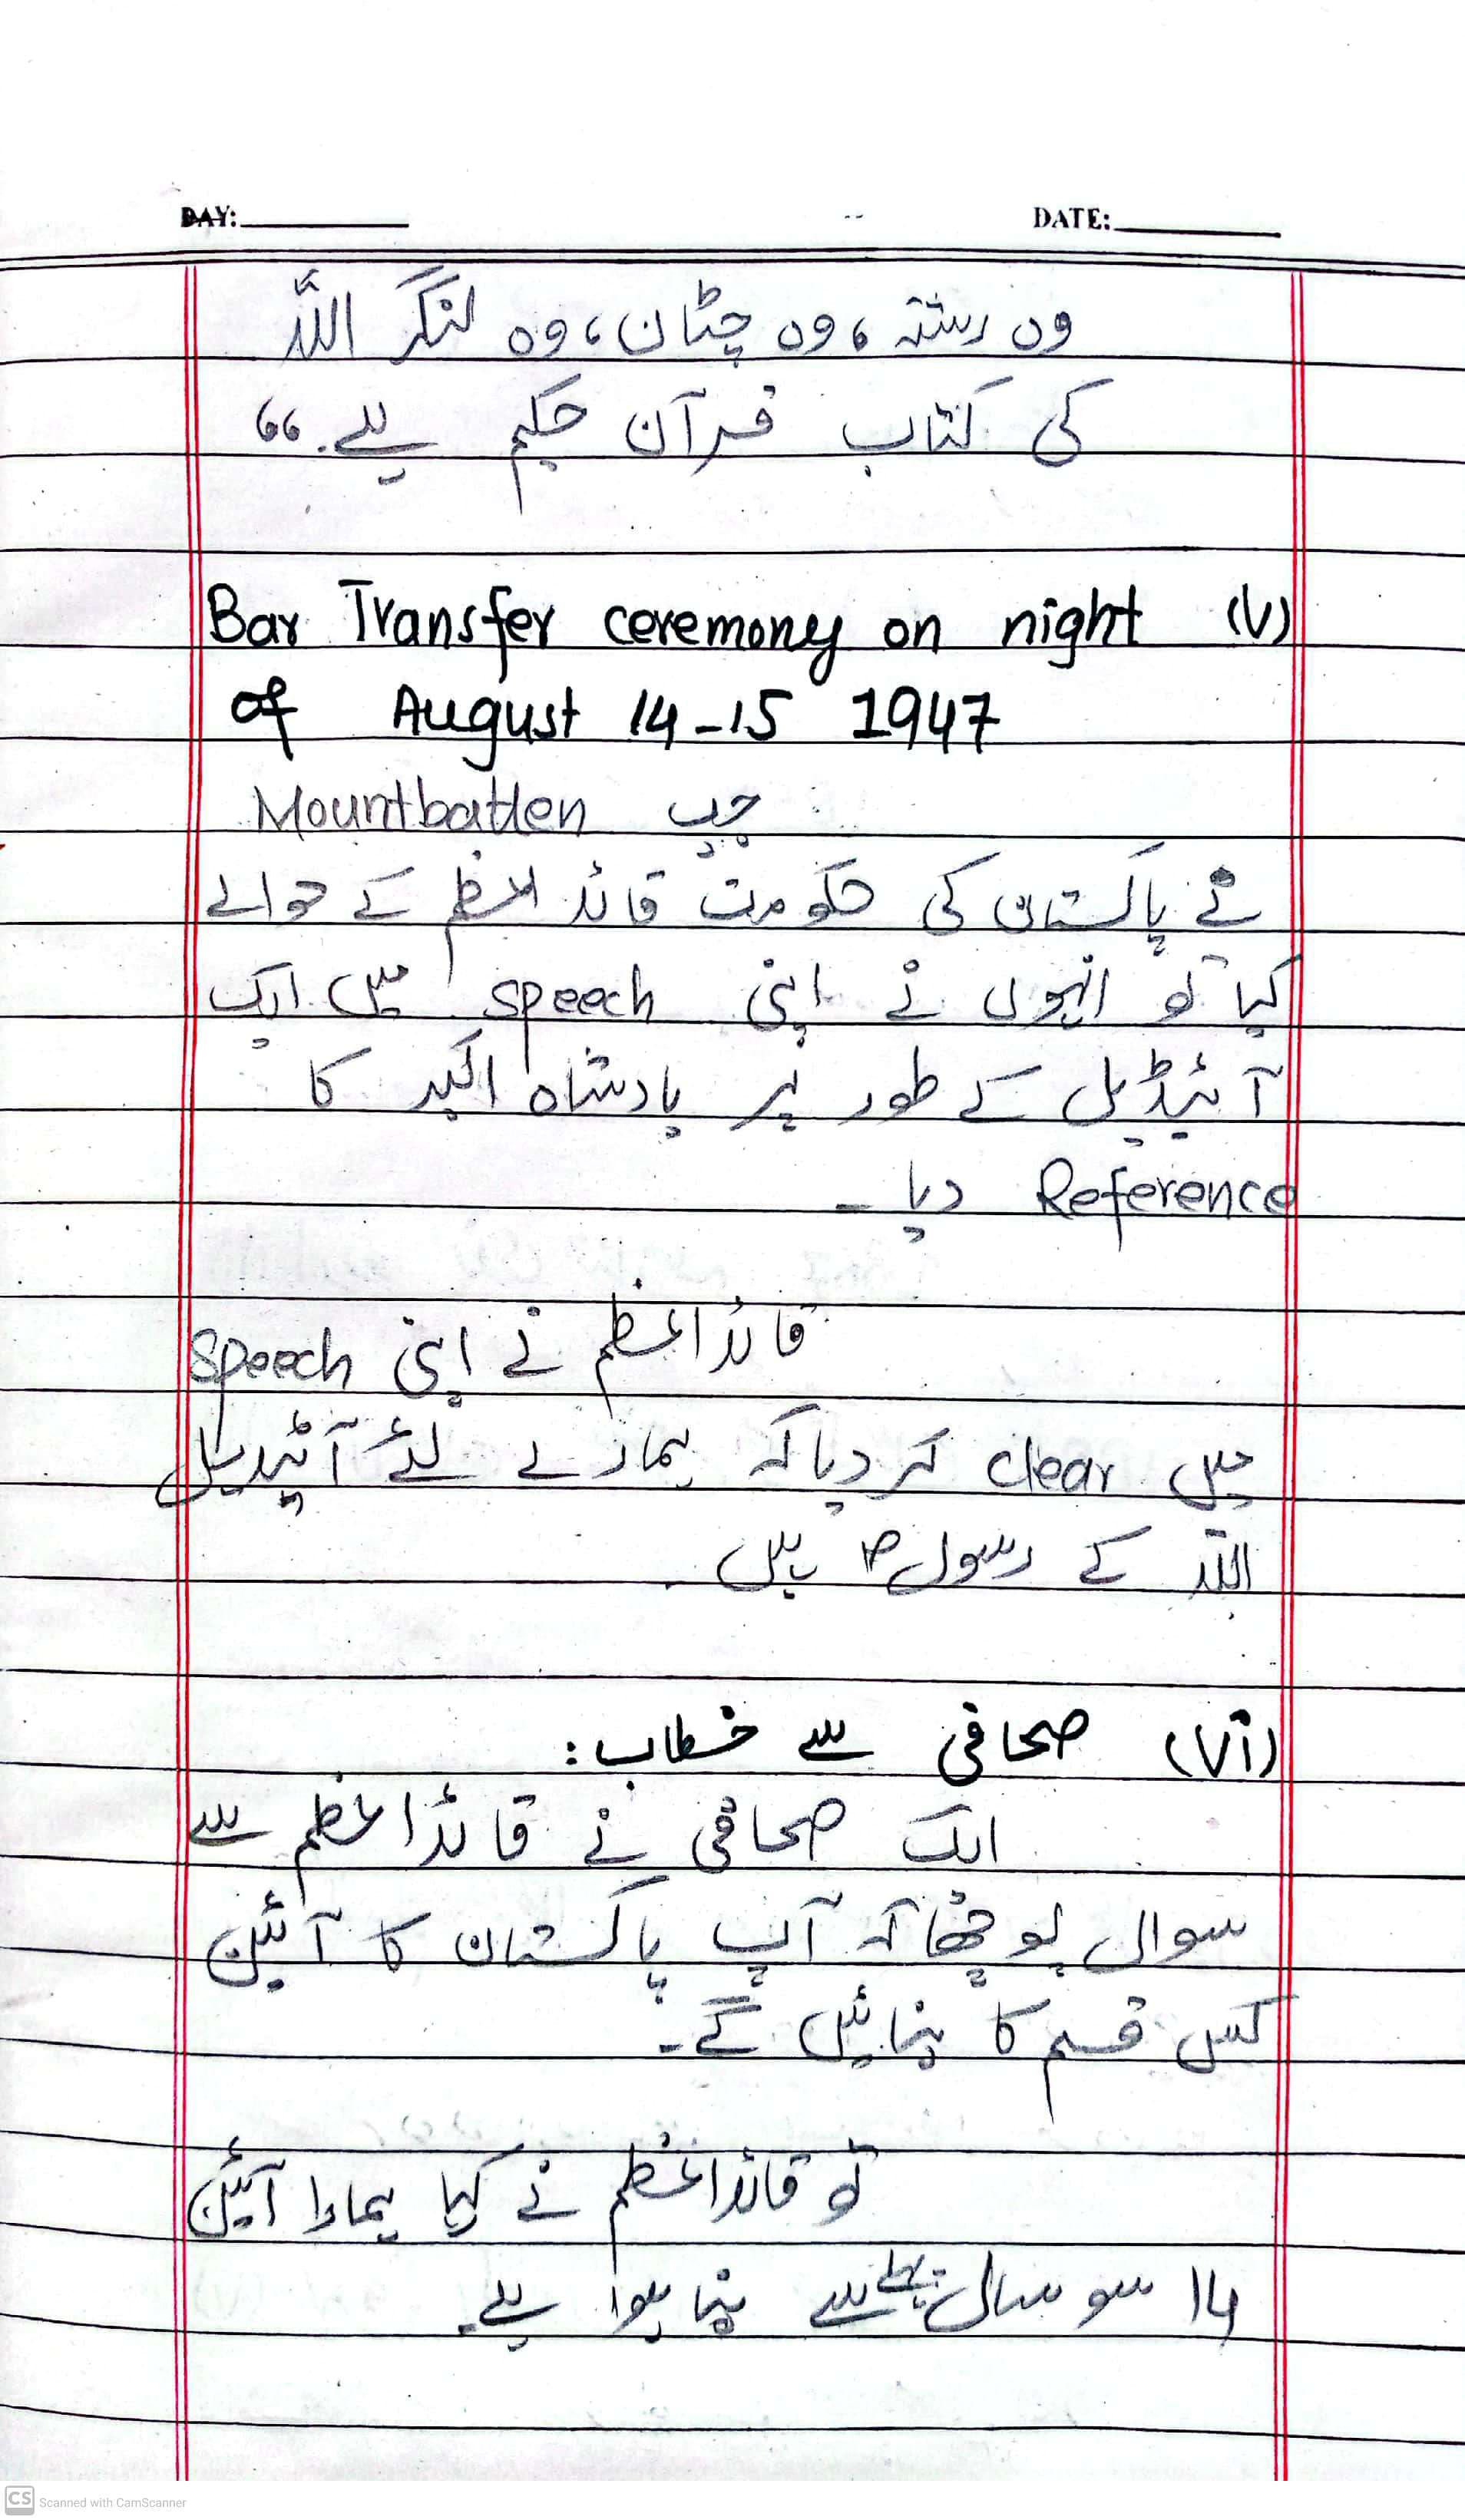 DAY: DATE:
وہ رشتہ، وہ چٹان، وہ لنگر اللہ
کی کتاب قرآن حکیم ہے۔“
(V) Bar Transfer ceremony on night
of August 14-15 1947
جب Mountbatten
نے پاکستان کی حکومت قائد اعظم کے حوالے
کیا تو انہوں نے اپنی speech میں ایک
آئیڈیل کے طور پر بادشاہ اکبر کا
Reference دیا ۔
قائداعظم نے اپنی speech
میں clear کر دیا کہ ہمارے لئے آئیڈیل
اللہ کے رسولؐ ہیں ۔
(Vi) صحافی سے خطاب :
ایک صحافی نے قائداعظم سے
سوال پوچھا کہ آپ پاکستان کا آئین
کس قسم کا بنائیں گے ۔
تو قائداعظم نے کہا ہمارا آئین
14 سو سال پہلے سے بنا ہوا ہے ۔
CS Scanned with CamScanner